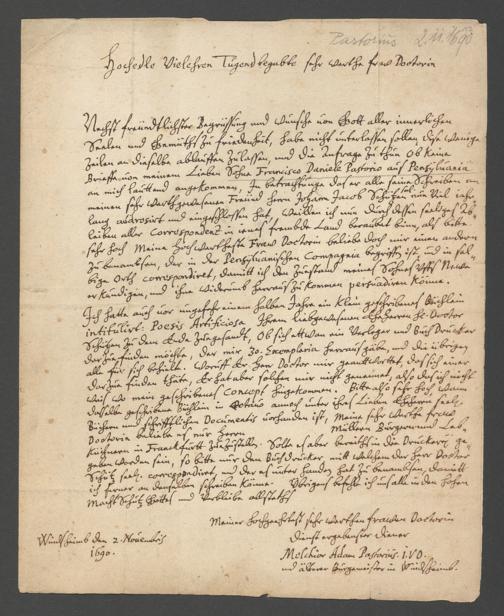 Pastorius 2.11.1690
Hochedle Vielehren Tugendbegabte sehr werthe fraw Doctorin
Nechst freündlichster Begrüssung und wunsch von Gott aller innerlichen
Seelen und Gemüths Zufriedenheit, habe nicht unterlassen sollen diese wenige
Zeilen an dieselbe ablauffen zulassen, und die Anfrage zu thun Ob keine
Brieffe von meinem Lieben Sohn Francisco Daniele Pastorio auß Pensylvania
an mich lauttend angekommen, In betrachtunge daß er alle seine Schreiben an
meinen sehr werthgewesenen Freünd Herrn Johann Jacob Schützen viel Jahr
lang addressirt und eingeschlossen hat, Weillen ich nun durch dessen seeliges Ab
leiben aller Correspondentz in jenes frembde Land beraubet binn, alß bitte
sehr hoch Meine Hochwertheste Fraw Doctorin beliebe doch mir einen andern
zu benambsen, der in der Pensylvanischen Compagnia begriffen ist, und in sel-
bige Orth correspondiret, damitt ich den Zustand meines Sohns
erkündigen, und ihne widerumb herauß zu kommen persuadiren könne.
Ich hatte auch vor ungefehr einem halben Jahr ein klein geschriebenes Büchlein
intitulirt: Poesis Artificiosa Ihrem liebgewesenen Eheherrn H. Doctor
Schützen zu dem Ende zugesandt, Ob sich etwan ein Verleger und Buch Drucker
darzu finden möchte, der mir 30. Exemplaria herauß gäbe, und die übrigen
alle für sich behielte. Worauff der Herr Doctor mir geantworttet, daß sich einer
darzu finden thäte, Er hat aber solchen mir nicht genennet, also daß ich nicht
weiß wo mein geschriebenes Concept hingekommen. Bitte also sehr hoch wann
dasselbe geschriebene Büchlein in annoch unter ihres Lieben Eheherrn seel.
Büchern und schrifftlichen Documentis vorhanden ist, Meine sehr werthe fraw
Doctorin beliebe es mir Herrn Müllern Burgern und
in Franckfurth zuzustellen. Solte es aber bereiths in die Druckerey ge-
geben worden sein, so bitte mir den Buchdrucker mitt welchem der Herr Doctor
Schütz seel. correspondiret, und der es unter handen hat zu benambsen, damitt
ich ferner an denselben schreiben könne. Übrigens befehle ich uns alle in den hohen
Macht Schutz Gottes und verbleibe allstetß
Meiner hochgeehrtest sehr werthen frawen Doctorin
Dienstergebenster diener
Melchior Adam Pastorius. I.V.D.
und älterer Burgermeister in Windsheimb.
Windsheimb den 2. Novembris
1690.